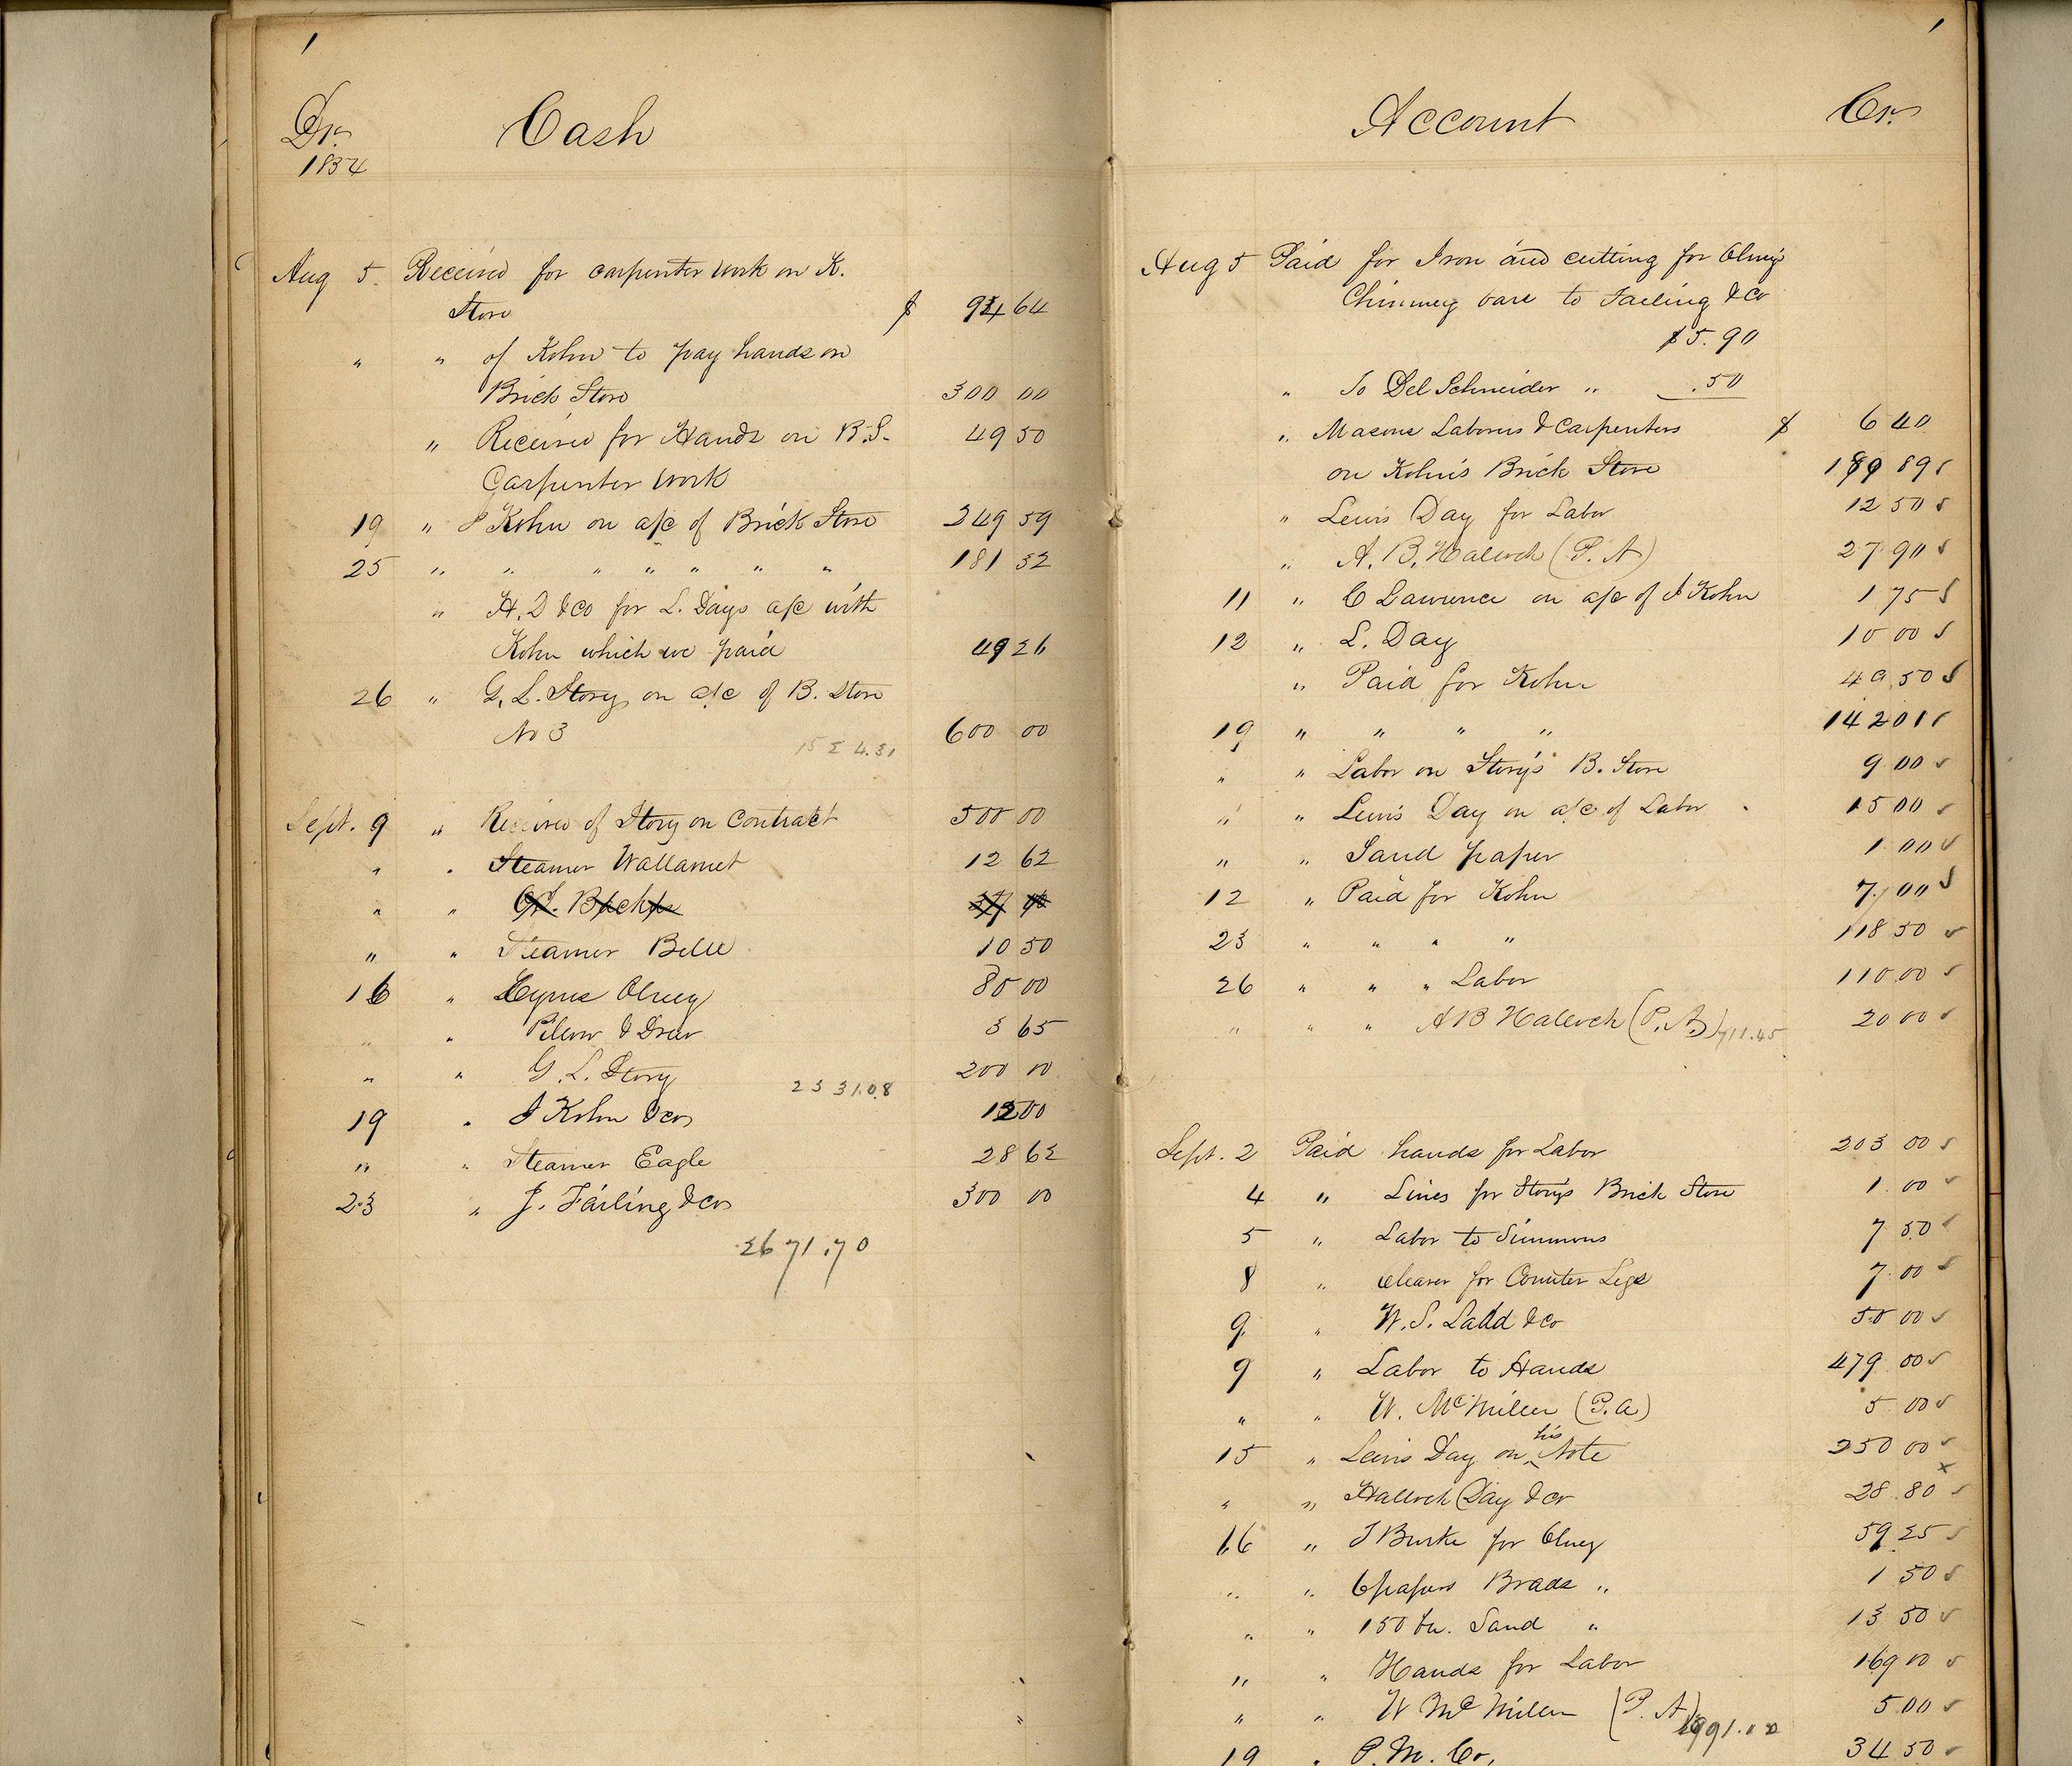 1
Dr. Cash
1854
Aug 5. Received for carpenter work on K.
Store $ 94 64
" " of Kohn to pay hands on
Brick Store 300 00
" Received for Hands on B.S. 49 50
Carpenter work
19 " J Kohn on a/c of Brick Store 349 59
25 " " " " " " " 181 32
" H. D & co for L. Days a/c with
Kohn which we paid 49 26
26 " G. L. Story on a/c of B. Store
No 3 600 00
Sept. 9 " Received of Story on Contract 500 00
" " Steamer Wallamet 12 62
" "
" " Steamer Belle 10 50
16 " Cyrus Olney 80 00
" " & Drew 3 65
" " G. L. Story 200 00
2331.08
19 " J Kohn & co 12 00
" " Steamer Eagle 28 62
23 " J. Failing & co 300 00
2671.70
1
Account Cr.
Aug 5 Paid for Iron and cutting for Olney's
Chimney bars to Failing & Co
$5.90
" To Del Schneider " .50
" Masons Laborers & Carpenters $ 6 40
on Kohn's Brick Store 189 89
" Lewis Day for Labor 12 50
" A. B. Hallock (P. A) 27 90
11 " C Lawrence on a/c of J Kohn 1 75
12 " L. Day 10 00
" Paid for Kohn 49 50
19 " " " " 142 01
" " Labor on Story's B. Store 9 00
" " Lewis Day on a/c of Labor 15 00
" " Sand paper 1 00
12 " Paid for Kohn 7 00
23 " " " " 118 50
26 " " " Labor 110 00
" " " A B Hallock (P. A) 711.45 20 00
Sept. 2 Paid hands for Labor 203 00
4 " Lines for Story's Brick Store 1 00
5 " Labor to Simmons 7 50
8 " Cleaver for Counter Legs 7 00
9 " W. S. Ladd & co 50 00
9 " Labor to Hands 479 00
" " W. McMillen (P. A) 5 00
15 " Lewis Day on his Note 250 00
" " Hallock (Day & Co 28 80
16 " J Burke for Olney 59 25
" " 6 papers Brads " 1 50
" " 150 bu. Sand " 13 50
" " Hands for Labor 169 00
" " W McMillen (P. A) 5 00
19 " P. M. Co. 34 50